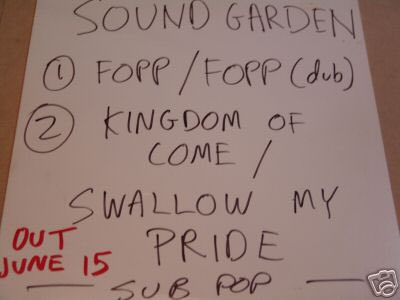 SOUND GARDEN
① FOPP / FOPP (dub)
② KINGDOM OF
COME /
SWALLOW MY
PRIDE
OUT
JUNE 15
— SUB POP —